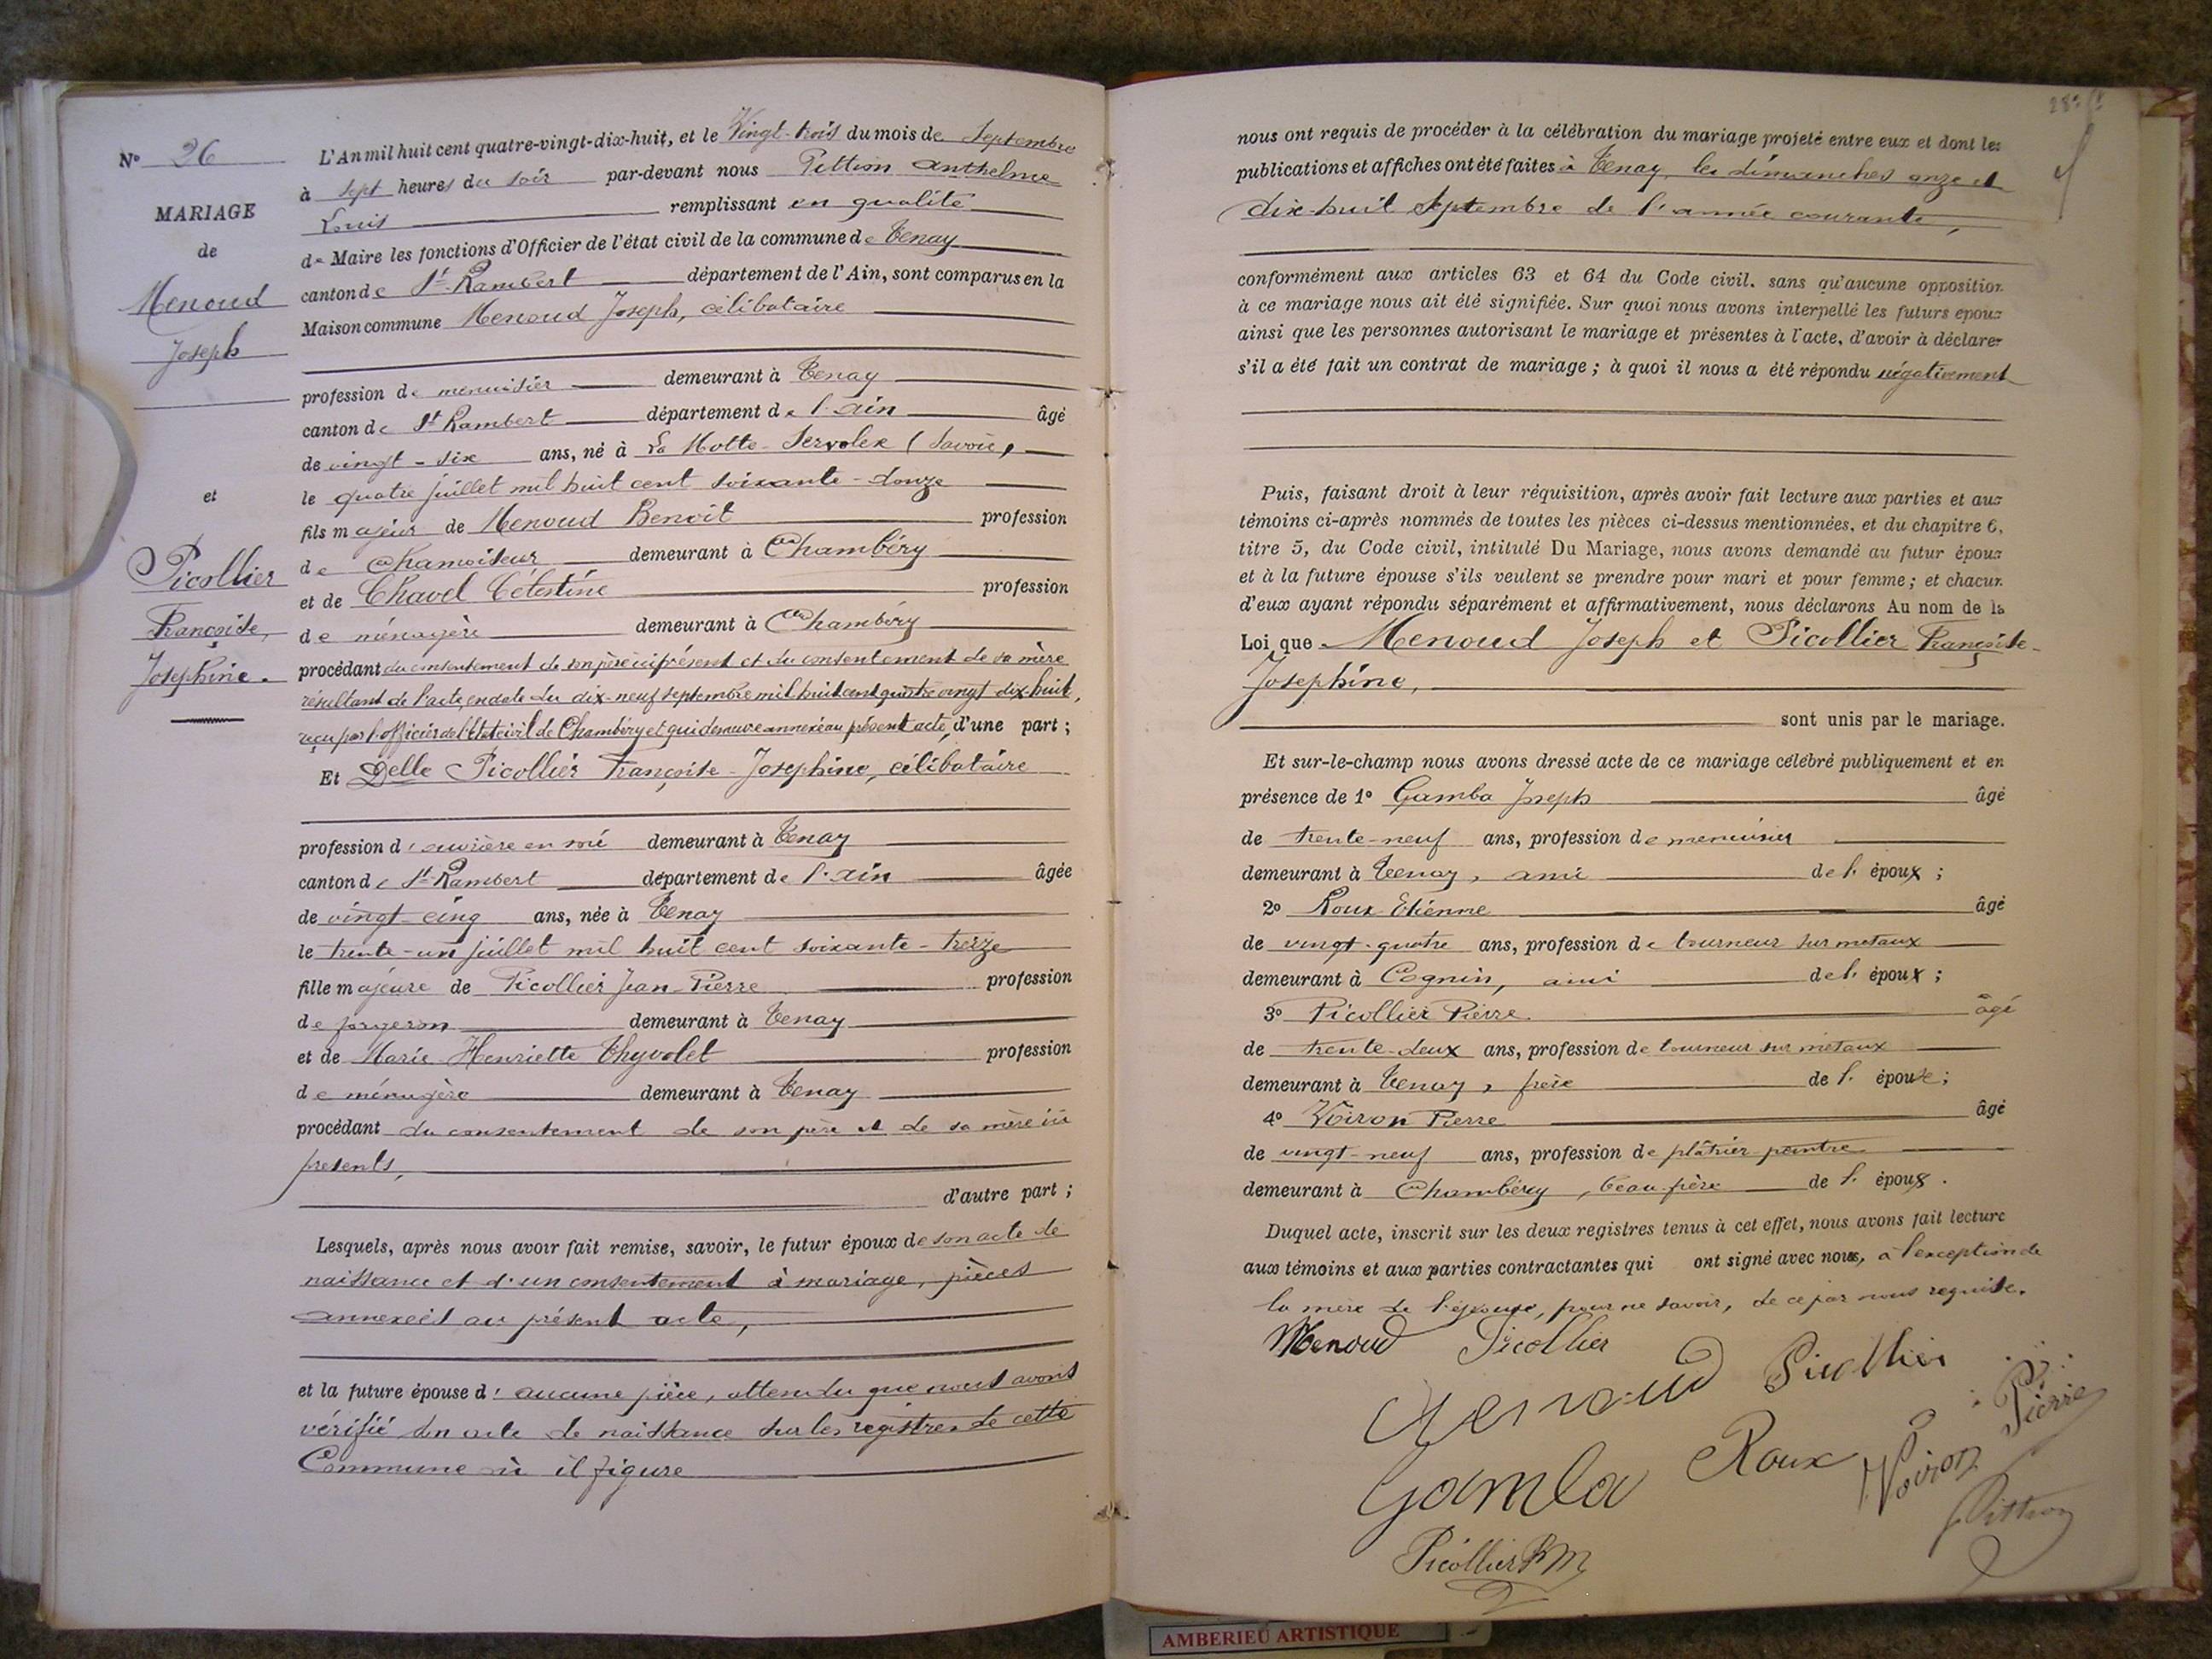 N° 26
MARIAGE
de
Menoud
Joseph
et
Picollier
Françoise,
Joséphine.
L'An mil huit cent quatre-vingt-dix-huit, et le Vingt-trois du mois de Septembre
à sept heures du soir par-devant nous Pittion Anthelme
Louis remplissant en qualité
de Maire les fonctions d'Officier de l'état civil de la commune de Tenay
canton de St Rambert département de l'Ain, sont comparus en la
Maison commune Menoud Joseph, célibataire
profession de menuisier demeurant à Tenay
canton de St Rambert département de l'Ain âgé
de vingt-six ans, né à La Motte-Servolex (Savoie)
le quatre juillet mil huit cent soixante-douze
fils majeur de Menoud Benoit profession
de Chamoiseur demeurant à Chambéry
et de Chavel Célestine profession
de ménagère demeurant à Chambéry
procédant du consentement de son père ici présent et du consentement de sa mère
résultant de l'acte, en date du dix-neuf septembre mil huit cent quatre vingt dix huit,
reçu par l'officier de l'État civil de Chambéry et qui demeure annexé au présent acte, d'une part ;
Et Delle Picollier Françoise-Joséphine, célibataire
profession d'ouvrière en soie demeurant à Tenay
canton de St Rambert département de l'Ain âgée
de vingt-cinq ans, née à Tenay
le trente-un juillet mil huit cent soixante-treize
fille majeure de Picollier Jean-Pierre profession
de forgeron demeurant à Tenay
et de Marie-Henriette Thyvolet profession
de ménagère demeurant à Tenay
procédant du consentement de son père et de sa mère ici
présents,
d'autre part ;
Lesquels, après nous avoir fait remise, savoir, le futur époux de son acte de
naissance et d'un consentement à mariage, pièces
annexées au présent acte,
et la future épouse d'aucune pièce, attendu que nous avons
vérifié son acte de naissance sur les registres de cette
Commune où il figure
nous ont requis de procéder à la célébration du mariage projeté entre eux et dont les
publications et affiches ont été faites à Tenay, les dimanches onze et
dix-huit Septembre de l'année courante,
conformément aux articles 63 et 64 du Code civil, sans qu'aucune opposition
à ce mariage nous ait été signifiée. Sur quoi nous avons interpellé les futurs époux
ainsi que les personnes autorisant le mariage et présentes à l'acte, d'avoir à déclarer
s'il a été fait un contrat de mariage ; à quoi il nous a été répondu négativement
Puis, faisant droit à leur réquisition, après avoir fait lecture aux parties et aux
témoins ci-après nommés de toutes les pièces ci-dessus mentionnées, et du chapitre 6,
titre 5, du Code civil, intitulé Du Mariage, nous avons demandé au futur époux
et à la future épouse s'ils veulent se prendre pour mari et pour femme ; et chacun
d'eux ayant répondu séparément et affirmativement, nous déclarons Au nom de la
Loi que Menoud Joseph et Picollier Françoise-
Joséphine,
sont unis par le mariage.
Et sur-le-champ nous avons dressé acte de ce mariage célébré publiquement et en
présence de 1° Gamba Joseph âgé
de trente-neuf ans, profession de menuisier
demeurant à Tenay, ami de l'époux ;
2° Roux Etienne âgé
de vingt-quatre ans, profession de tourneur sur métaux
demeurant à Cognin, ami de l'époux ;
3° Picollier Pierre âgé
de trente-deux ans, profession de tourneur sur métaux
demeurant à Tenay, frère de l'épouse ;
4° Voiron Pierre âgé
de vingt-neuf ans, profession de plâtrier-peintre
demeurant à Chambéry, beau-frère de l'époux.
Duquel acte, inscrit sur les deux registres tenus à cet effet, nous avons fait lecture
aux témoins et aux parties contractantes qui ont signé avec nous, à l'exception de
la mère de l'épouse, pour ne savoir, de ce par nous requise.
Menoud Picollier
Menoud Picollier
Gamba Roux Voiron Pierre
Picollier Pittion
AMBERIEU ARTISTIQUE